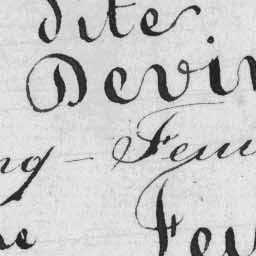 dite
Devin
ng - Fem
ne Fev